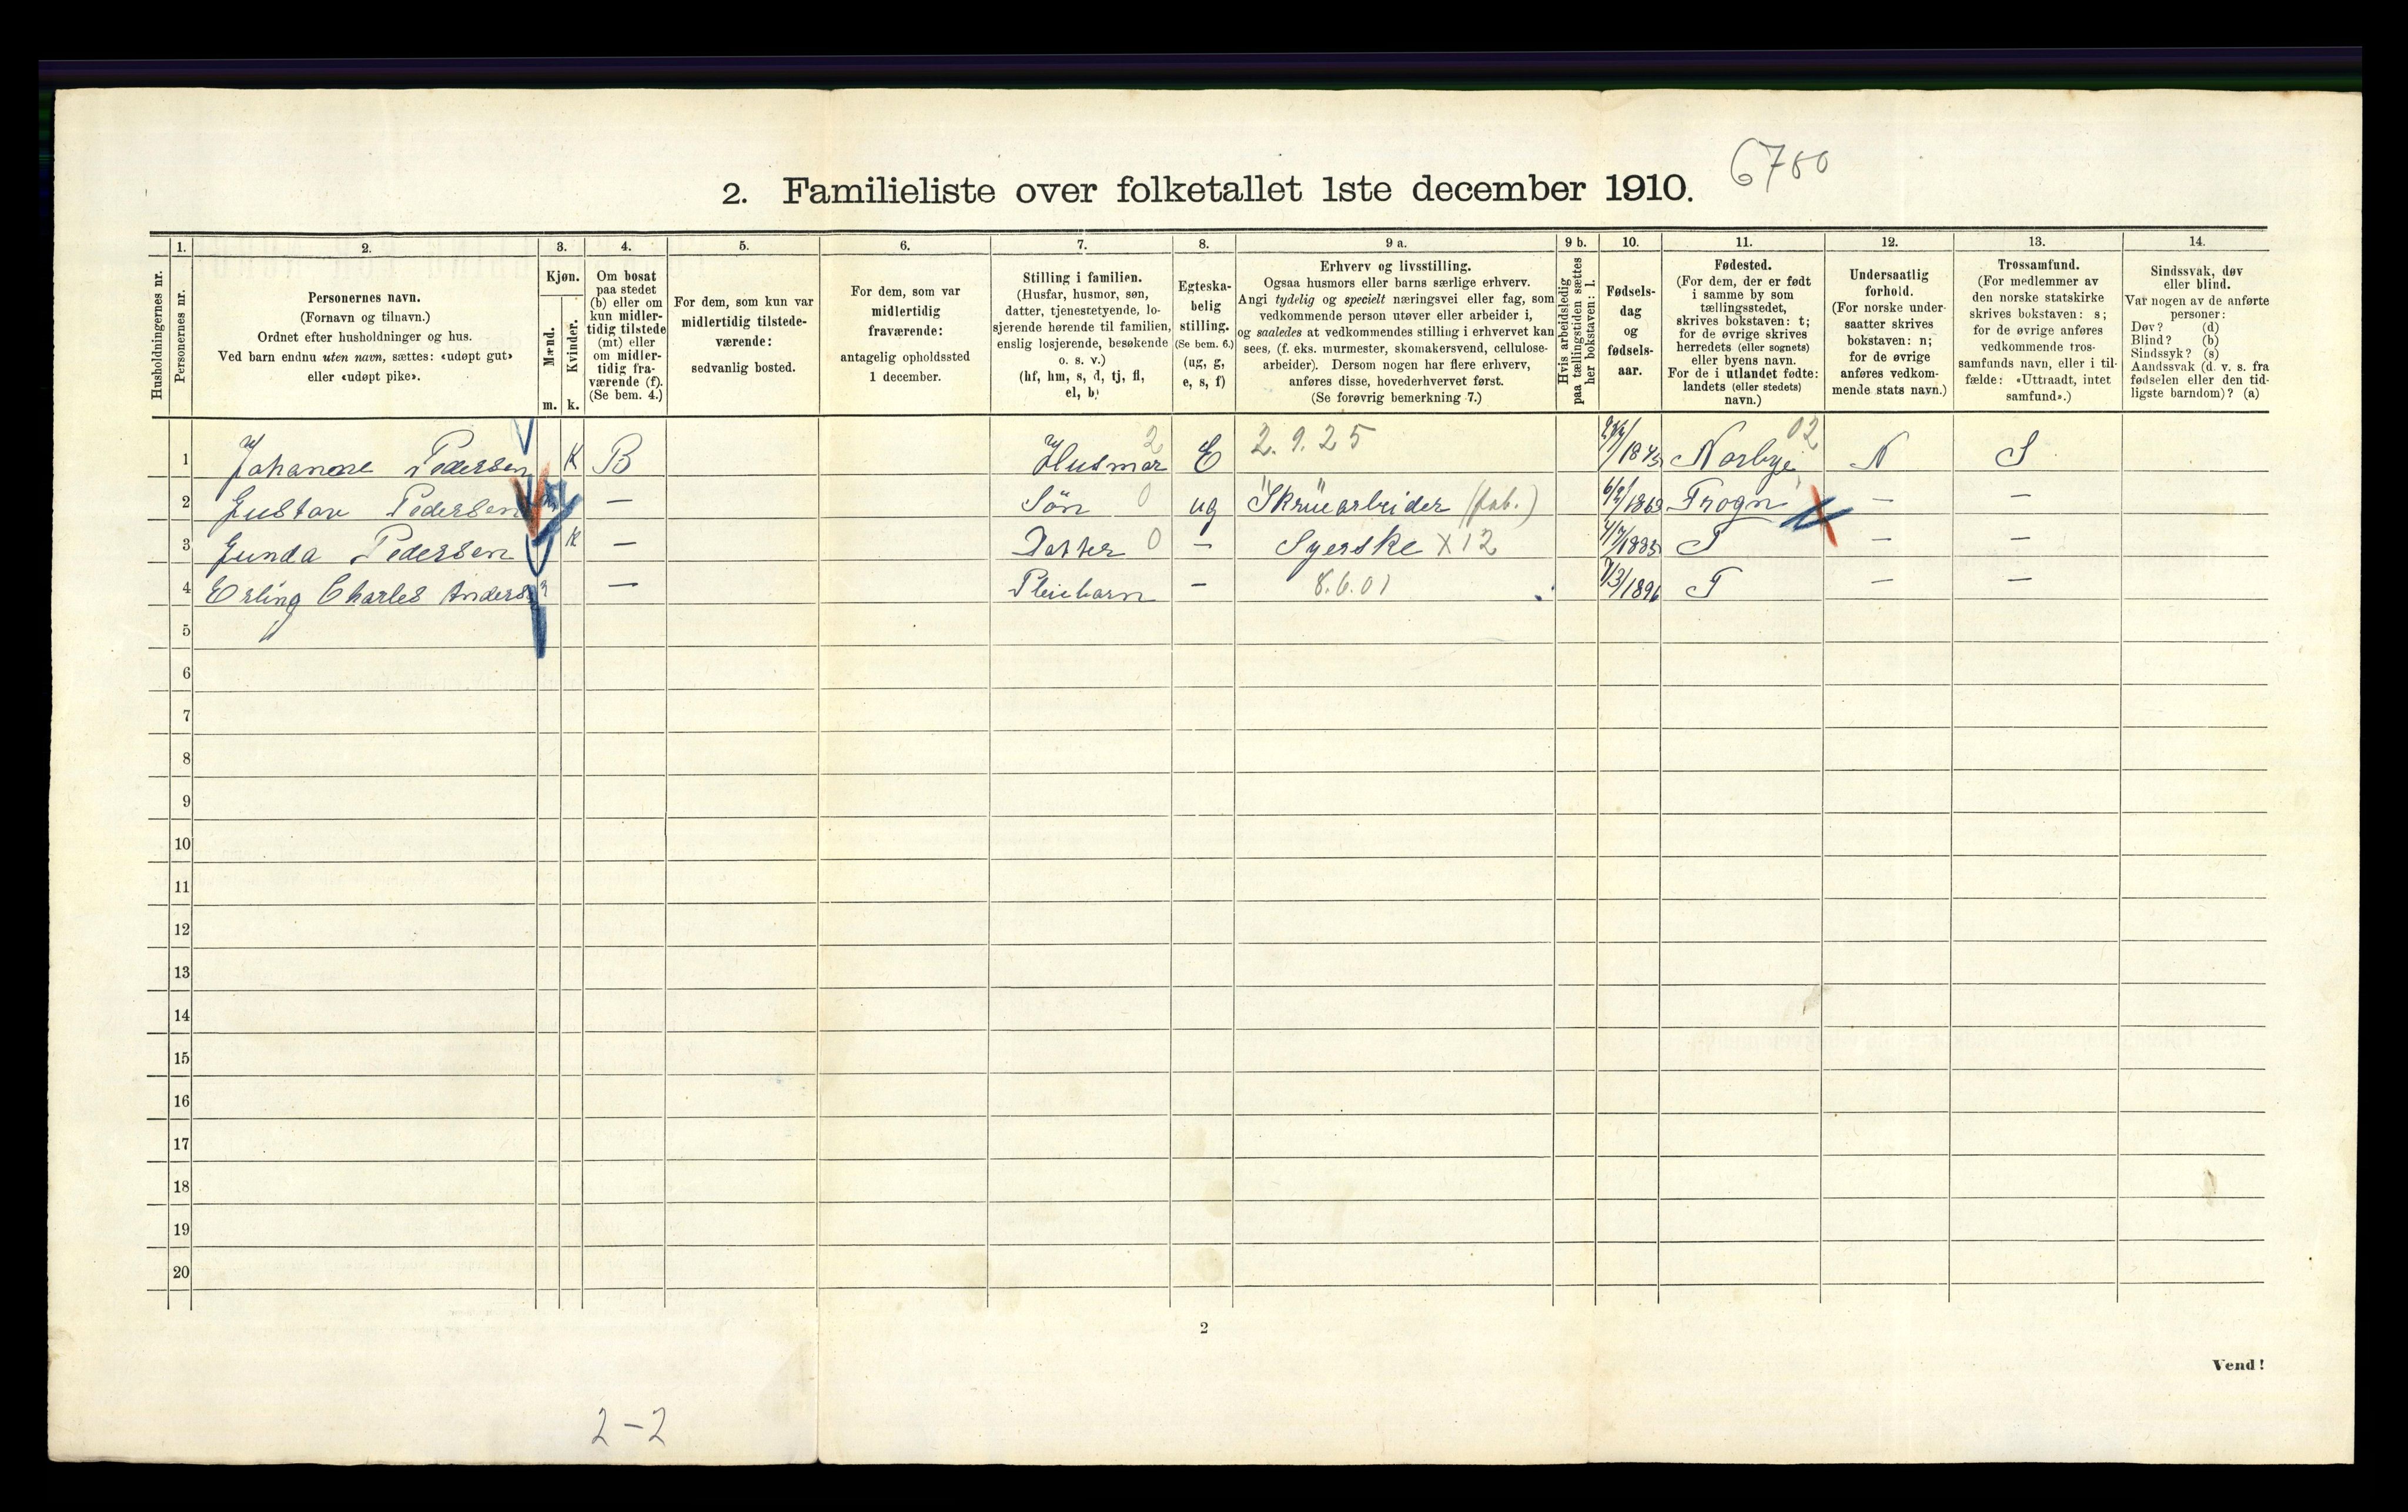 6780
2. Familieliste over folketallet 1ste december 1910.
Husholdningernes nr.
1. Personernes nr.
2. Personernes navn.
(Fornavn og tilnavn.)
Ordnet efter husholdninger og hus.
Ved barn endnu uten navn, sættes: «udøpt gut»
eller «udøpt pike».
3. Kjøn.
Mænd. m.
Kvinder. k.
4. Om bosat
paa stedet
(b) eller om
kun midler-
tidig tilstede
(mt) eller
om midler-
tidig fra-
værende (f).
(Se bem. 4.)
5. For dem, som kun var
midlertidig tilstede-
værende:
sedvanlig bosted.
6. For dem, som var
midlertidig
fraværende:
antagelig opholdssted
1 december.
7. Stilling i familien.
(Husfar, husmor, søn,
datter, tjenestetyende, lo-
sjerende hørende til familien,
enslig losjerende, besøkende
o. s. v.)
(hf, hm, s, d, tj, fl,
el, b)
8. Egteska-
belig
stilling.
(Se bem. 6.)
(ug, g,
e, s, f)
9 a. Erhverv og livsstilling.
Ogsaa husmors eller barns særlige erhverv.
Angi tydelig og specielt næringsvei eller fag, som
vedkommende person utøver eller arbeider i,
og saaledes at vedkommendes stilling i erhvervet kan
sees, (f. eks. murmester, skomakersvend, cellulose-
arbeider). Dersom nogen har flere erhverv,
anføres disse, hovederhvervet først.
(Se forøvrig bemerkning 7.)
9 b. Hvis arbeidsledig
paa tællingstiden sættes
her bokstaven: l.
10. Fødsels-
dag
og
fødsels-
aar.
11. Fødested.
(For dem, der er født
i samme by som
tællingsstedet,
skrives bokstaven: t;
for de øvrige skrives
herredets (eller sognets)
eller byens navn.
For de i utlandet fødte:
landets (eller stedets)
navn.)
12. Undersaatlig
forhold.
(For norske under-
saatter skrives
bokstaven: n;
for de øvrige
anføres vedkom-
mende stats navn.)
13. Trossamfund.
(For medlemmer av
den norske statskirke
skrives bokstaven: s;
for de øvrige anføres
vedkommende tros-
samfunds navn, eller i til-
fælde: «Uttraadt, intet
samfund».)
14. Sindssvak, døv
eller blind.
Var nogen av de anførte
personer:
Døv? (d)
Blind? (b)
Sindssyk? (s)
Aandssvak (d. v. s. fra
fødselen eller den tid-
ligste barndom)? (a)
1 Pedersen K B Husmor 2 E 2.9.25 Norbye 02 N S
2 Gustav Pedersen — Sön 0 ug "Skrüarbeider (fab.) Frogn — —
3 Gunda Pedersen K — Datter 0 — Syerske X12 T — —
4 Erling Charles Anders — Pleiebarn — 8.6.01 7/3/1896 T — —
5
6
7
8
9
10
11
12
13
14
15
16
17
18
19
20
2
Vend!
2-2